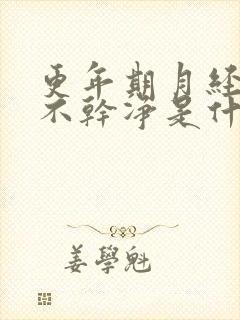 更年期月经
不幹淨是什
姜學魁